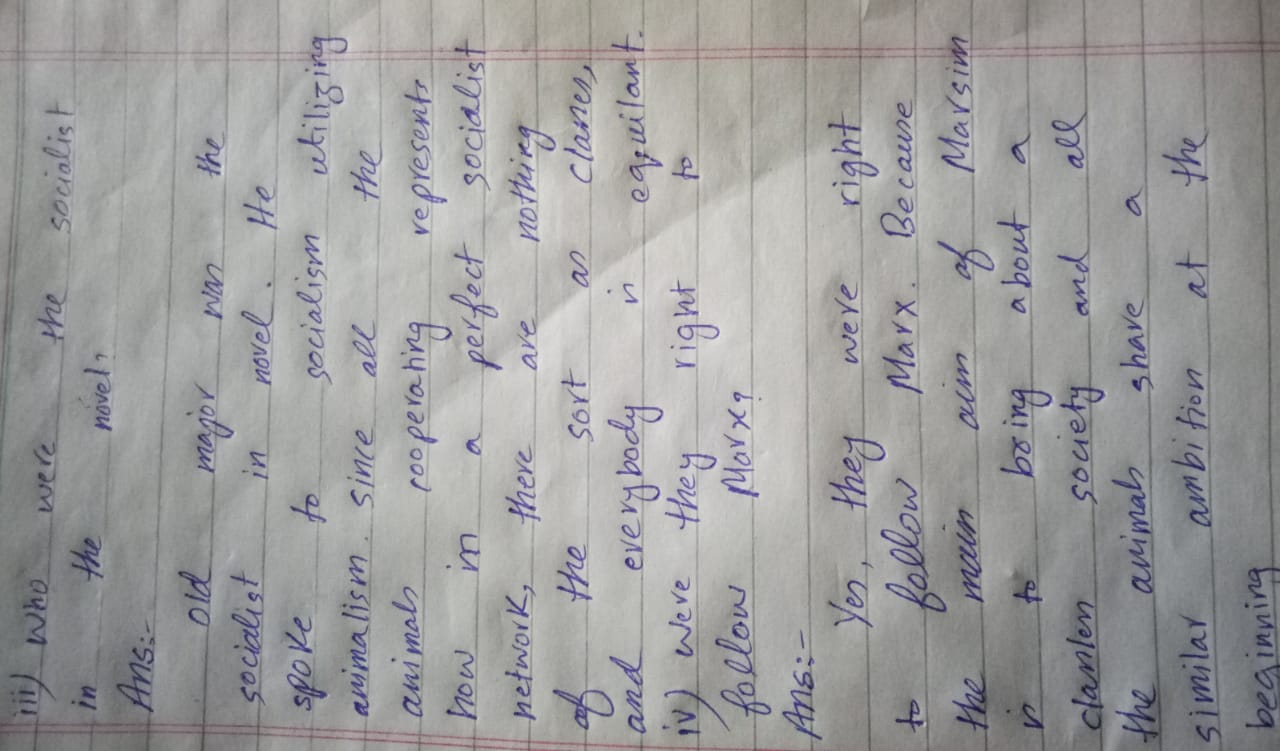 iii) Who were the socialist
in the novel?
Ans:-
Old major was the
socialist in novel. He
spoke to socialism utilizing
animalism. since all the
animals cooperating represents
how in a perfect socialist
network, there are nothing
of the sort as classes,
and everybody is equilant.
iv) were they right to
follow Marx?
Ans:-
Yes, they were right
to follow Marx. Because
the main aim of Marsim
is to bring about a
classless society and all
the animals share a
similar ambition at the
beginning